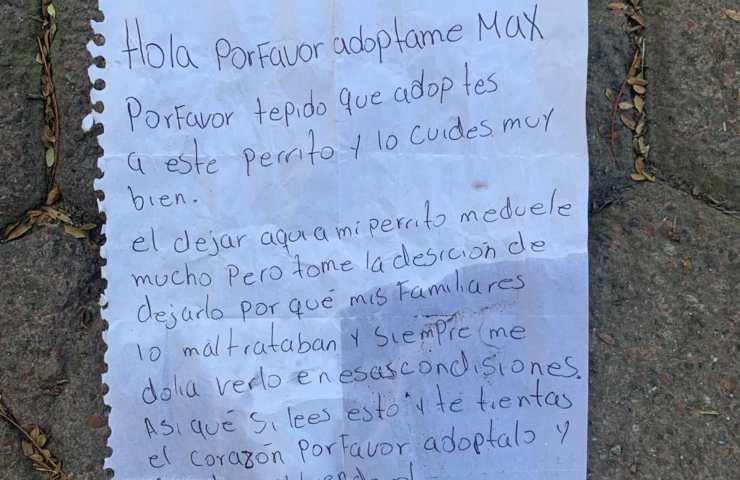 Hola PorFavor adoptame Max
PorFavor tepido que adoptes
a este perrito y lo cuides muy
bien.
el dejar aqui a mi perrito meduele
mucho pero tome la desicion de
dejarlo por qué mis Familiares
lo maltrataban y siempre me
dolia verlo en esas condisiones.
Asi qué si lees esto y te tientas
el corazón PorFavor adoptalo y